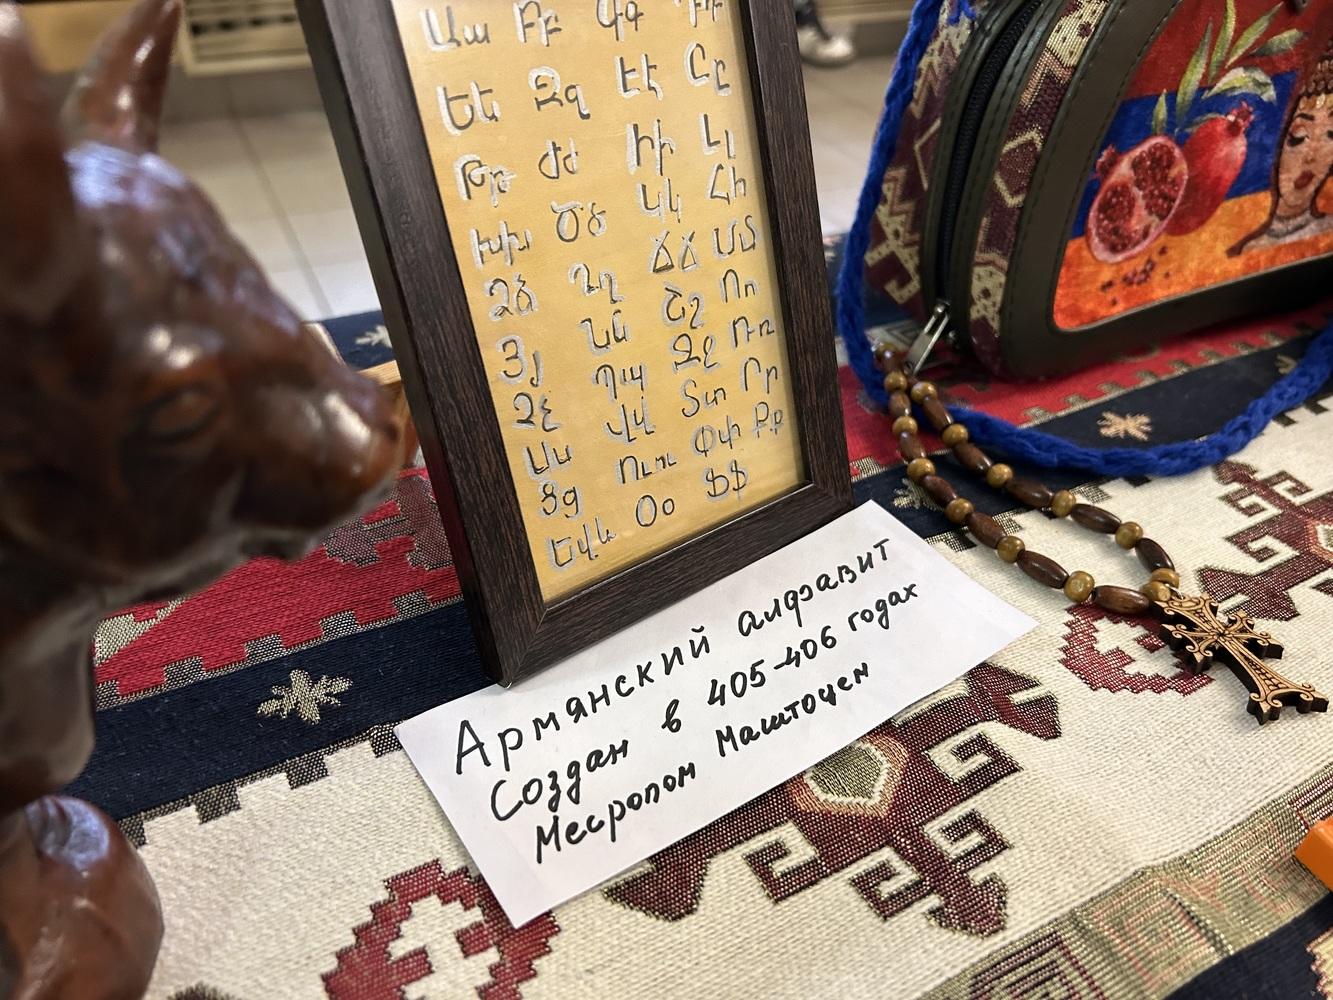 Աա Բբ Գգ Դդ
Եե Զզ Էէ Ըը
Թթ Ժժ Իի Լլ
Խխ Ծծ Կկ Հհ
Ձձ Ղղ Ճճ Մմ
Յյ Նն Շշ Ոո
Չչ Պպ Ջջ Ռռ
Սս Վվ Տտ Րր
Ցց Ււու Փփ Քք
Եվև Օօ Ֆֆ
Армянский алфавит
Создан в 405-406 годах
Месропом Маштоцем